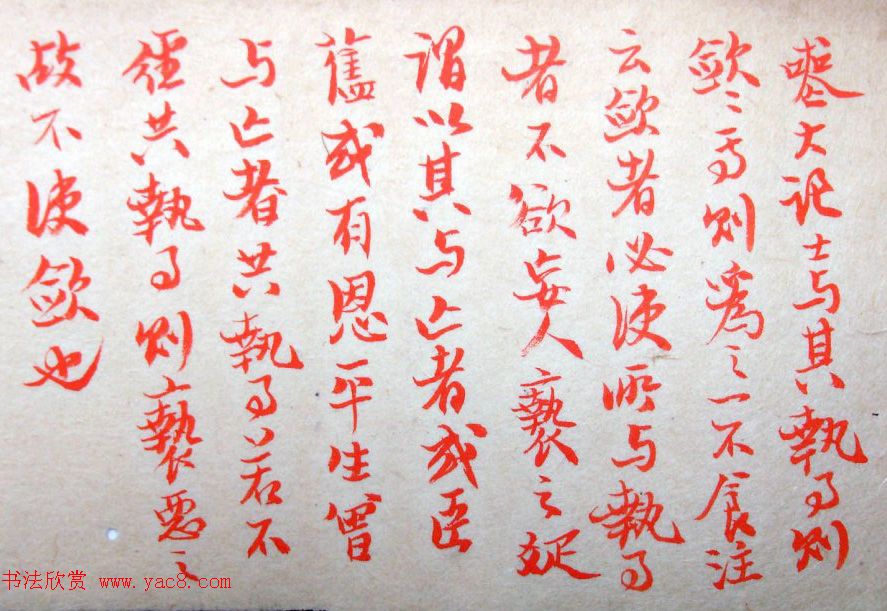 喪大记士与其執事則
歛﹦焉則爲之一不食注
云歛者必使所与執事
者不欲妄人褻之疏
谓以其与亡者或臣
舊或有恩平生曾
与亡者共執事若不
经共執事則褻惡之
故不使歛也
书法欣赏 www.yac8.com